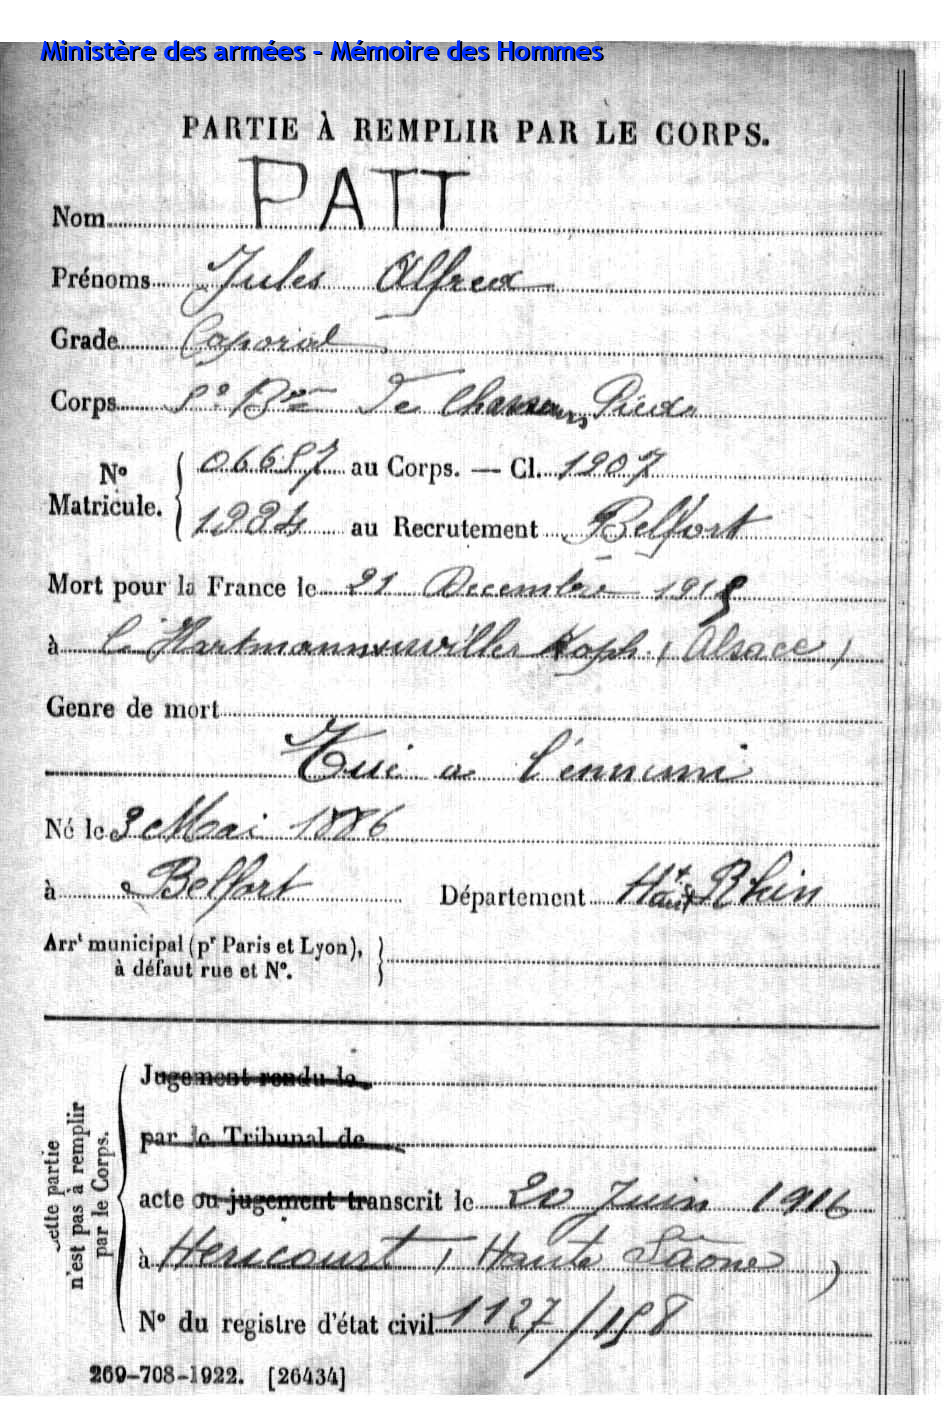 Ministère des armées - Mémoire des Hommes
PARTIE À REMPLIR PAR LE CORPS.
Nom PATT
Prénoms Jules Alfred
Grade Caporal
Corps 5e Bon De Chasseurs Pieds
No Matricule. 06657 au Corps. — Cl. 1907
1284 au Recrutement Belfort
Mort pour la France le 21 Decembre 1915
à l'Hartmannswiller Koph (Alsace)
Genre de mort
Tué a l'ennemi
Né le 3 Mai 1886
à Belfort Département Ht Haut Rhin
Arrt municipal (pr Paris et Lyon),
à défaut rue et No.
Cette partie
n'est pas à remplir
par le Corps.
Jugement rendu le
par le Tribunal de
acte ou jugement transcrit le 20 Juin 1916
à Hericourt (Haute Saône)
No du registre d'état civil 1127/158
269-708-1922. [26434]